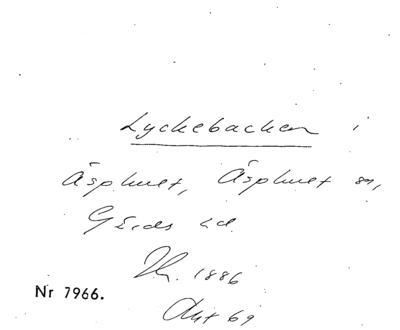 Lyckebacken i
Äsphult, Äsphult sn,
Gärds hd.
Th. 1886
Nr 7966.
Akt 69